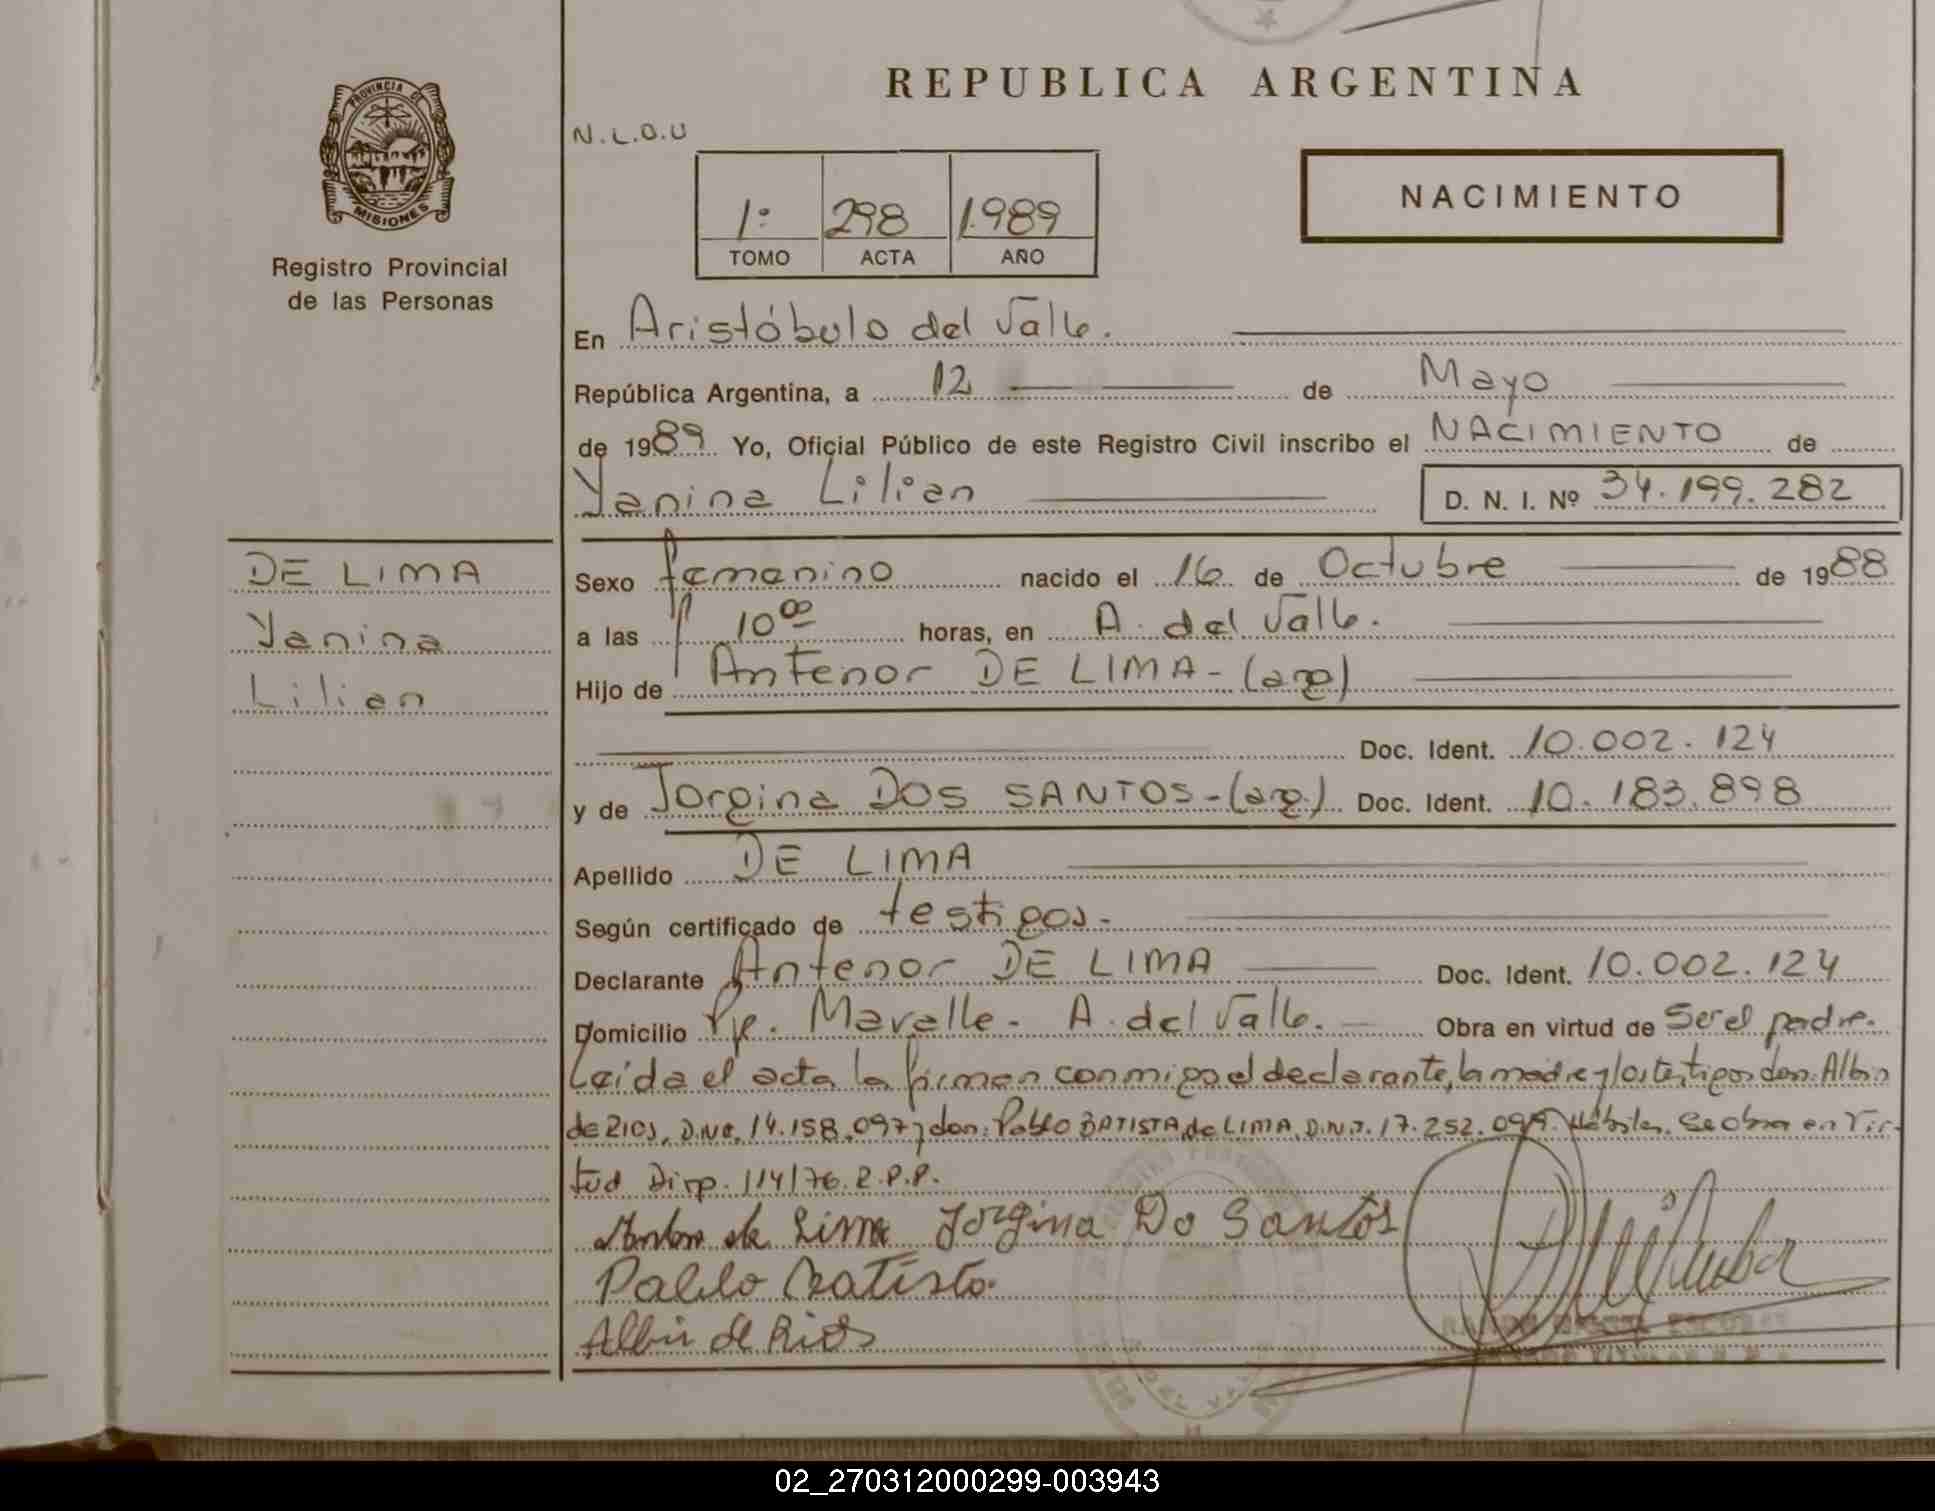 REPUBLICA ARGENTINA
PROVINCIA DE
MISIONES
Registro Provincial
de las Personas
N.L.O.U
1º 298 1.989
TOMO ACTA AÑO
NACIMIENTO
En Aristóbulo del Valle.
República Argentina, a 12 de Mayo
de 1989 Yo, Oficial Público de este Registro Civil inscribo el NACIMIENTO de
Yanina Lilian D. N. I. Nº 34.199.282
DE LIMA
Yanina
Lilian
Sexo femenino nacido el 16 de Octubre de 1988
a las 10⁰⁰ horas, en A. del Valle.
Hijo de Antenor DE LIMA-(arg)
Doc. Ident. 10.002.124
y de Jorgina DOS SANTOS-(arg.) Doc. Ident. 10.183.898
Apellido DE LIMA
Según certificado de testigos.-
Declarante Antenor DE LIMA Doc. Ident. 10.002.124
Domicilio Pje. Mavalle- A. del Valle. Obra en virtud de Ser el padre.
Leída el acta la firman conmigo el declarante, la madre y los testigos don: Albin
de Rios, D.N.I. 14.158.097 y don: Pablo BATISTA de LIMA, D.N.I. 17.252.099. Hábiles. Se obra en Vir-
tud Disp. 114/76. R.P.P.
de Lima Jorgina Do Santos
Pablo Batista
Albin de Rios
02_270312000299-003943